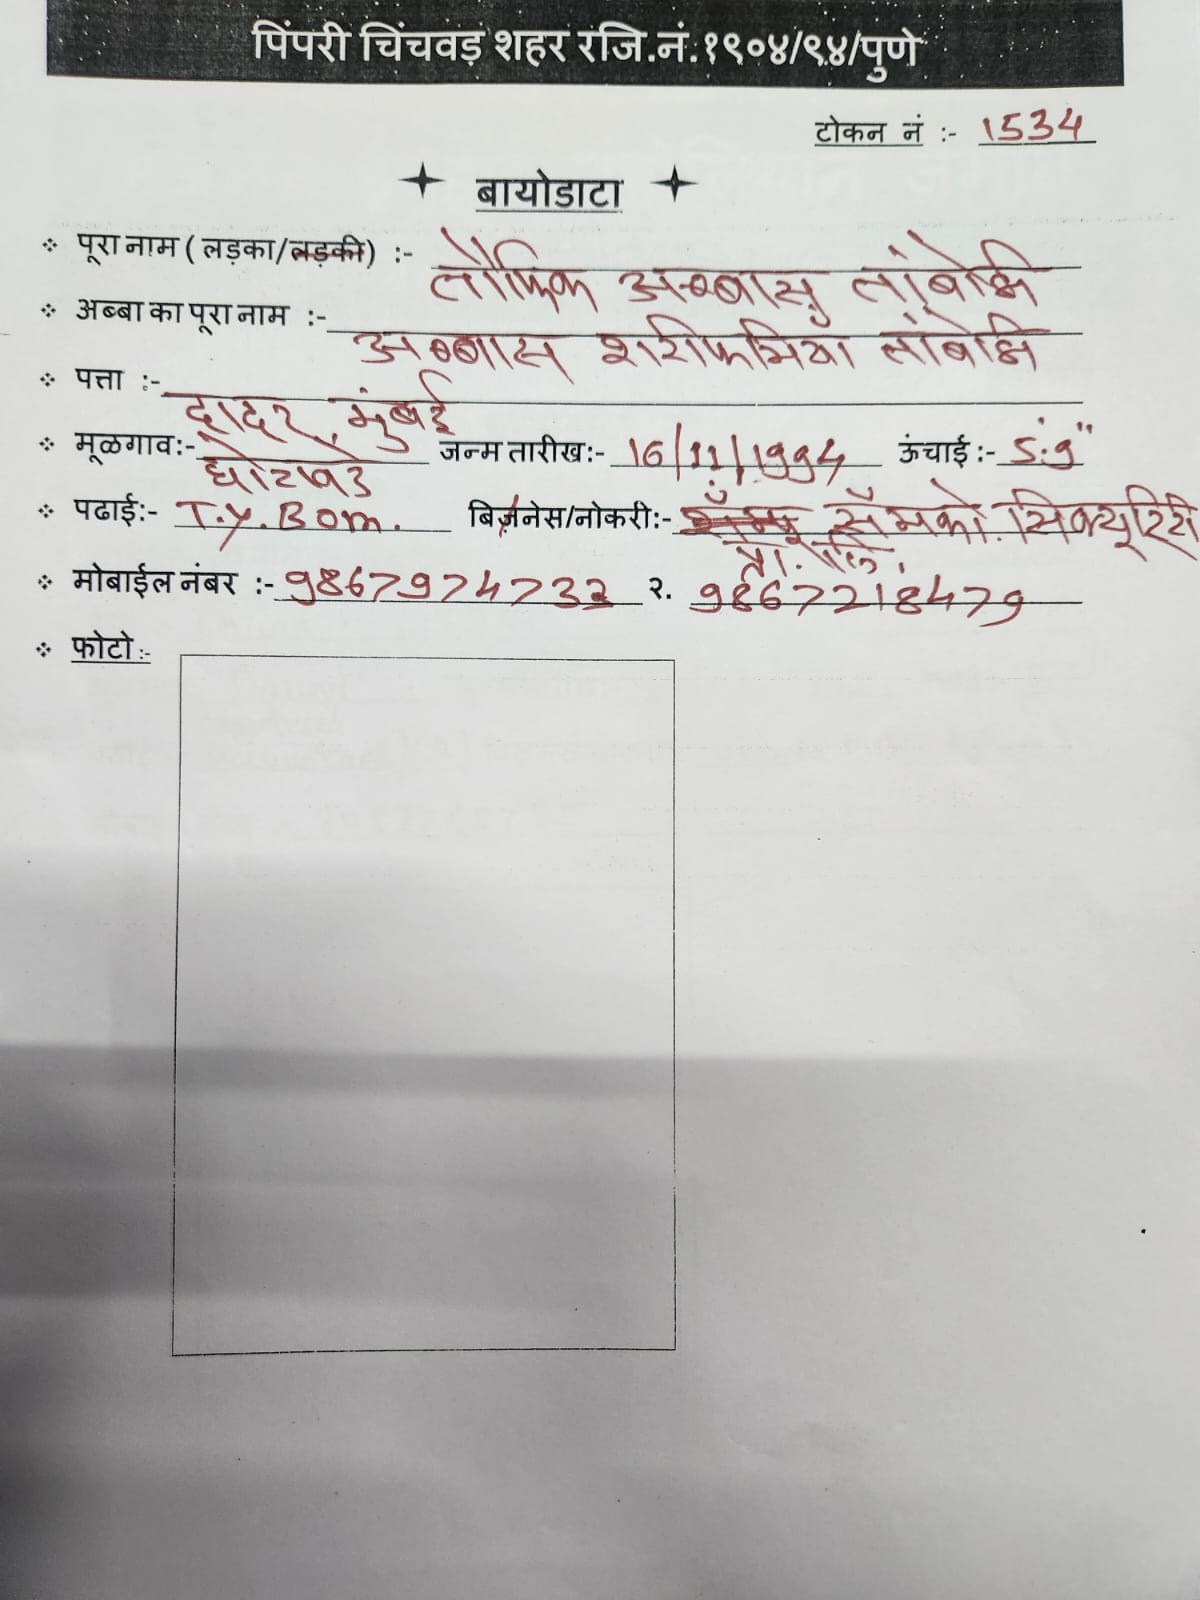 पिंपरी चिंचवड शहर रजि.नं.१९०४/९४/पुणे
टोकन नं :- 1534
बायोडाटा
❖ पूरा नाम ( लड़का/लड़की) :- तौफिक अब्बास तांबोळी
❖ अब्बा का पूरा नाम :- अब्बास शरीफमिया तांबोळी
❖ पत्ता :- दादर, मुंबई
❖ मूळगाव:- घोटवडे जन्म तारीख:- 16/11/1994 ऊंचाई :- 5.9"
❖ पढाई:- T.y.Bom. बिज़नेस/नोकरी:- सॅमको. सिक्यूरिटी
प्रा. लि.
❖ मोबाईल नंबर :- 9867974733 २. 9867218479
❖ फोटो :-